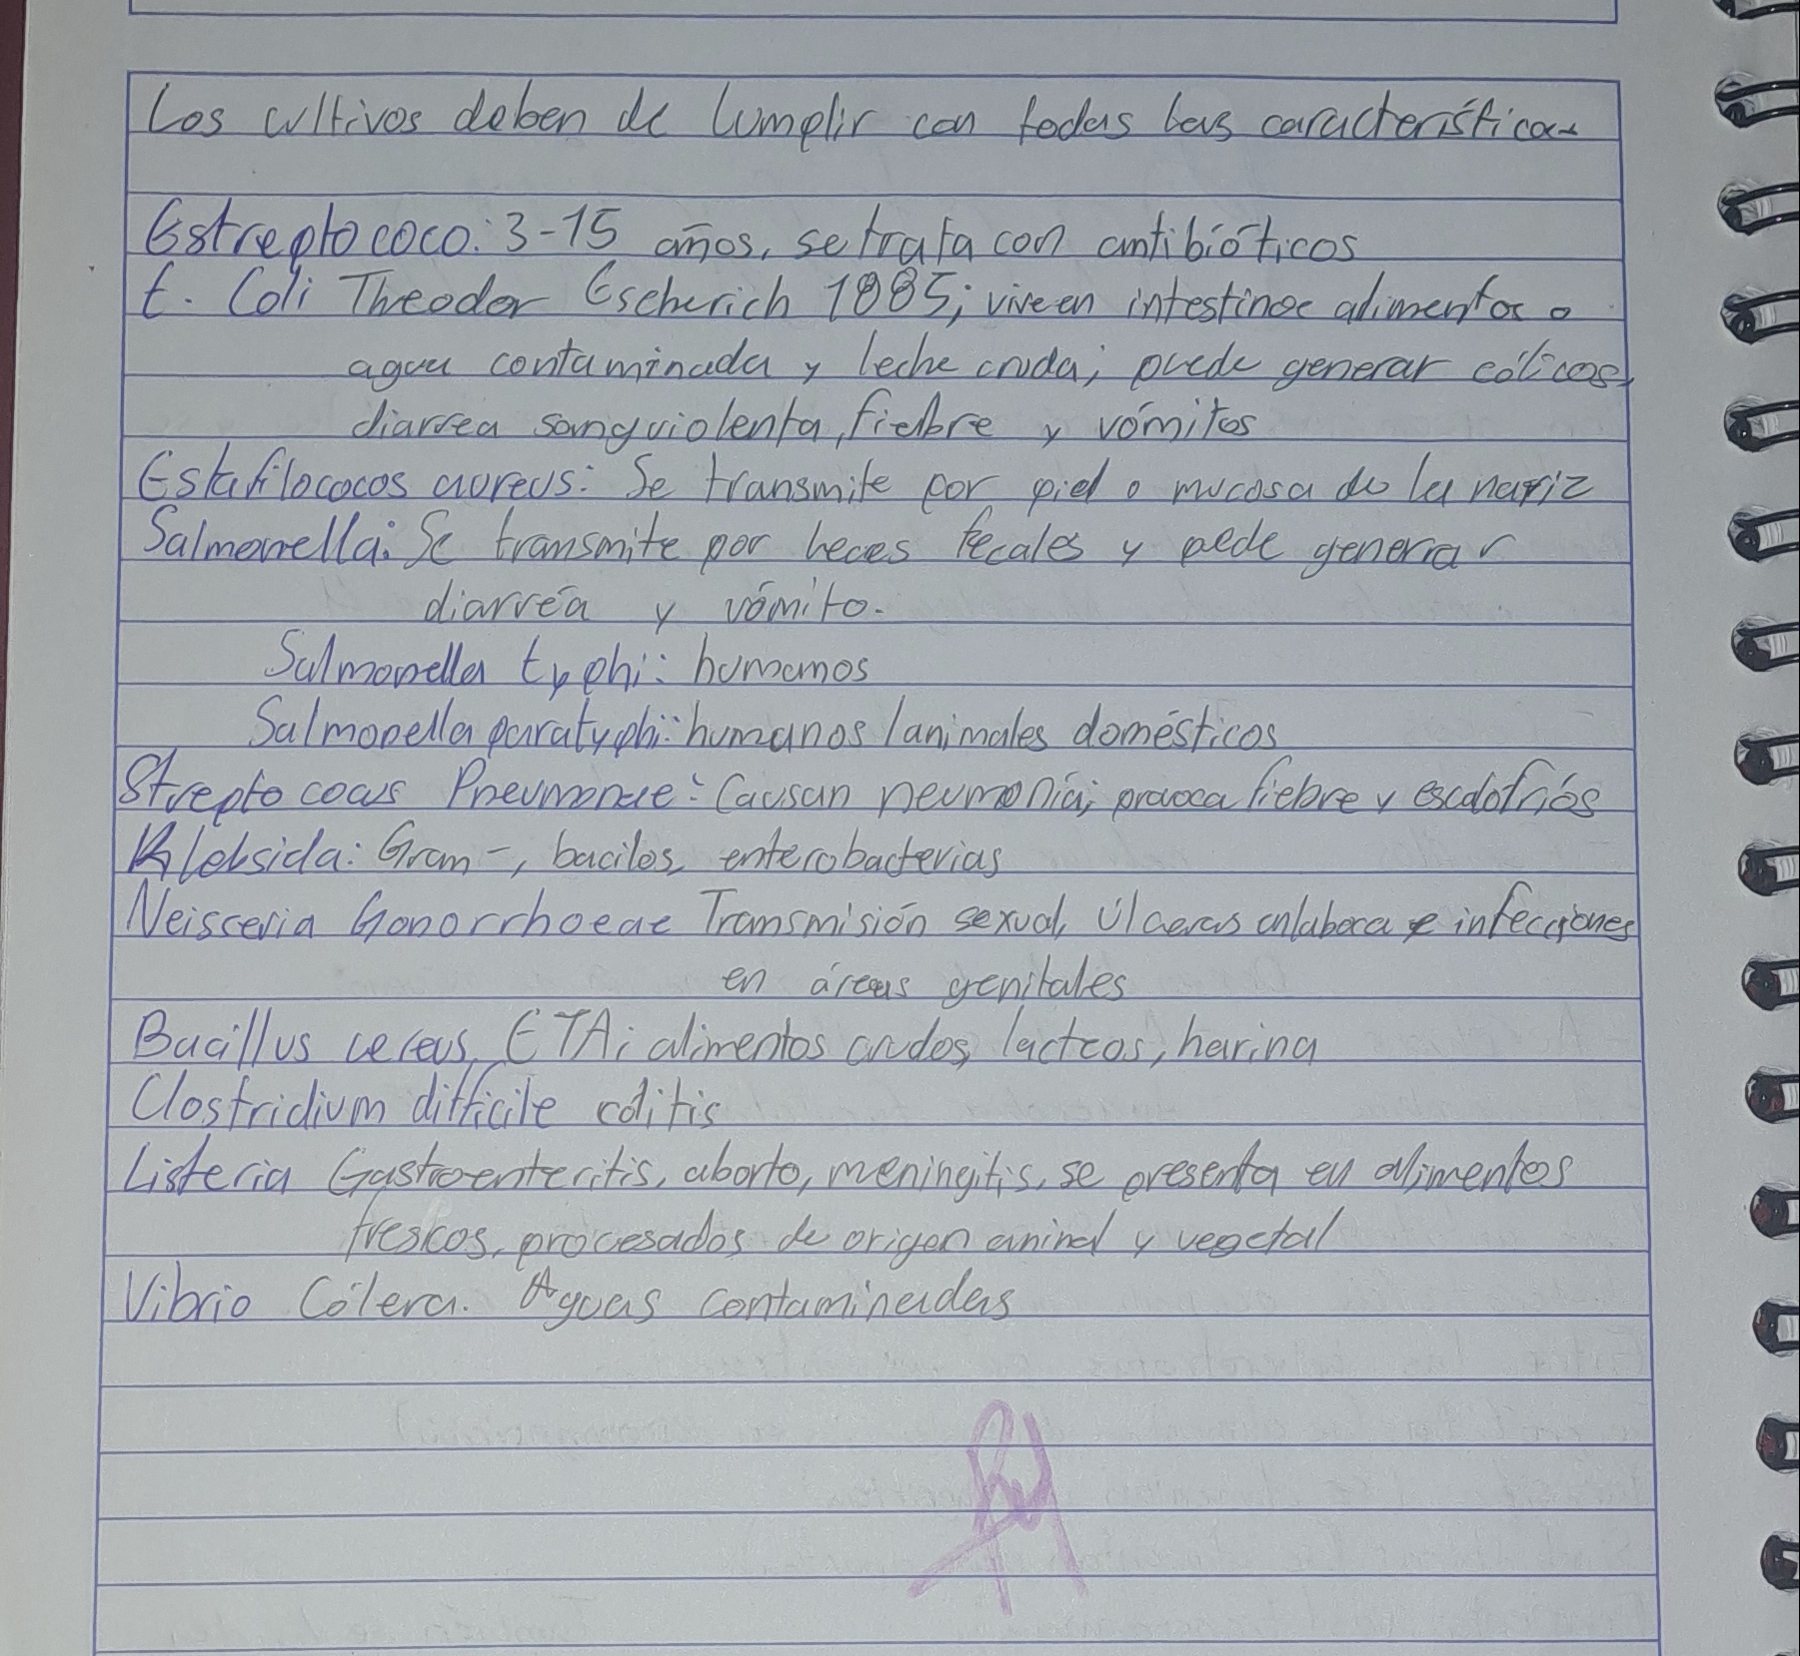 Los cultivos deben de cumplir con todas las características
Estreptococo: 3-15 años, se trata con antibióticos
E. Coli Theodor Escherich 1885; vive en intestinos alimentos o
agua contaminada y leche cruda; puede generar cólicos,
diarrea sanguiolenta, fiebre y vómitos
Estafilococos aureus: Se transmite por piel o mucosa de la nariz
Salmonella: Se transmite por heces fecales y pede generar
diarrea y vómito.
Salmonella typhi: humanos
Salmonella paratyphi: humanos / animales domésticos
Streptococus Pneumonae: Causan neumonía; provoca fiebre y escalofríos
Klebsida: Gram -, bacilos, enterobacterias
Neisceria Gonorrhoeae Transmisión sexual, úlceras en la boca e infecciones
en áreas genitales
Bacillus cereus, ETA; alimentos crudos, lacteos, harina
Clostridium difficile colitis
Listeria Gastroenteritis, aborto, meningitis, se presenta en alimentos
frescos, procesados de origen animal y vegetal
Vibrio Cólera. Aguas contaminadas